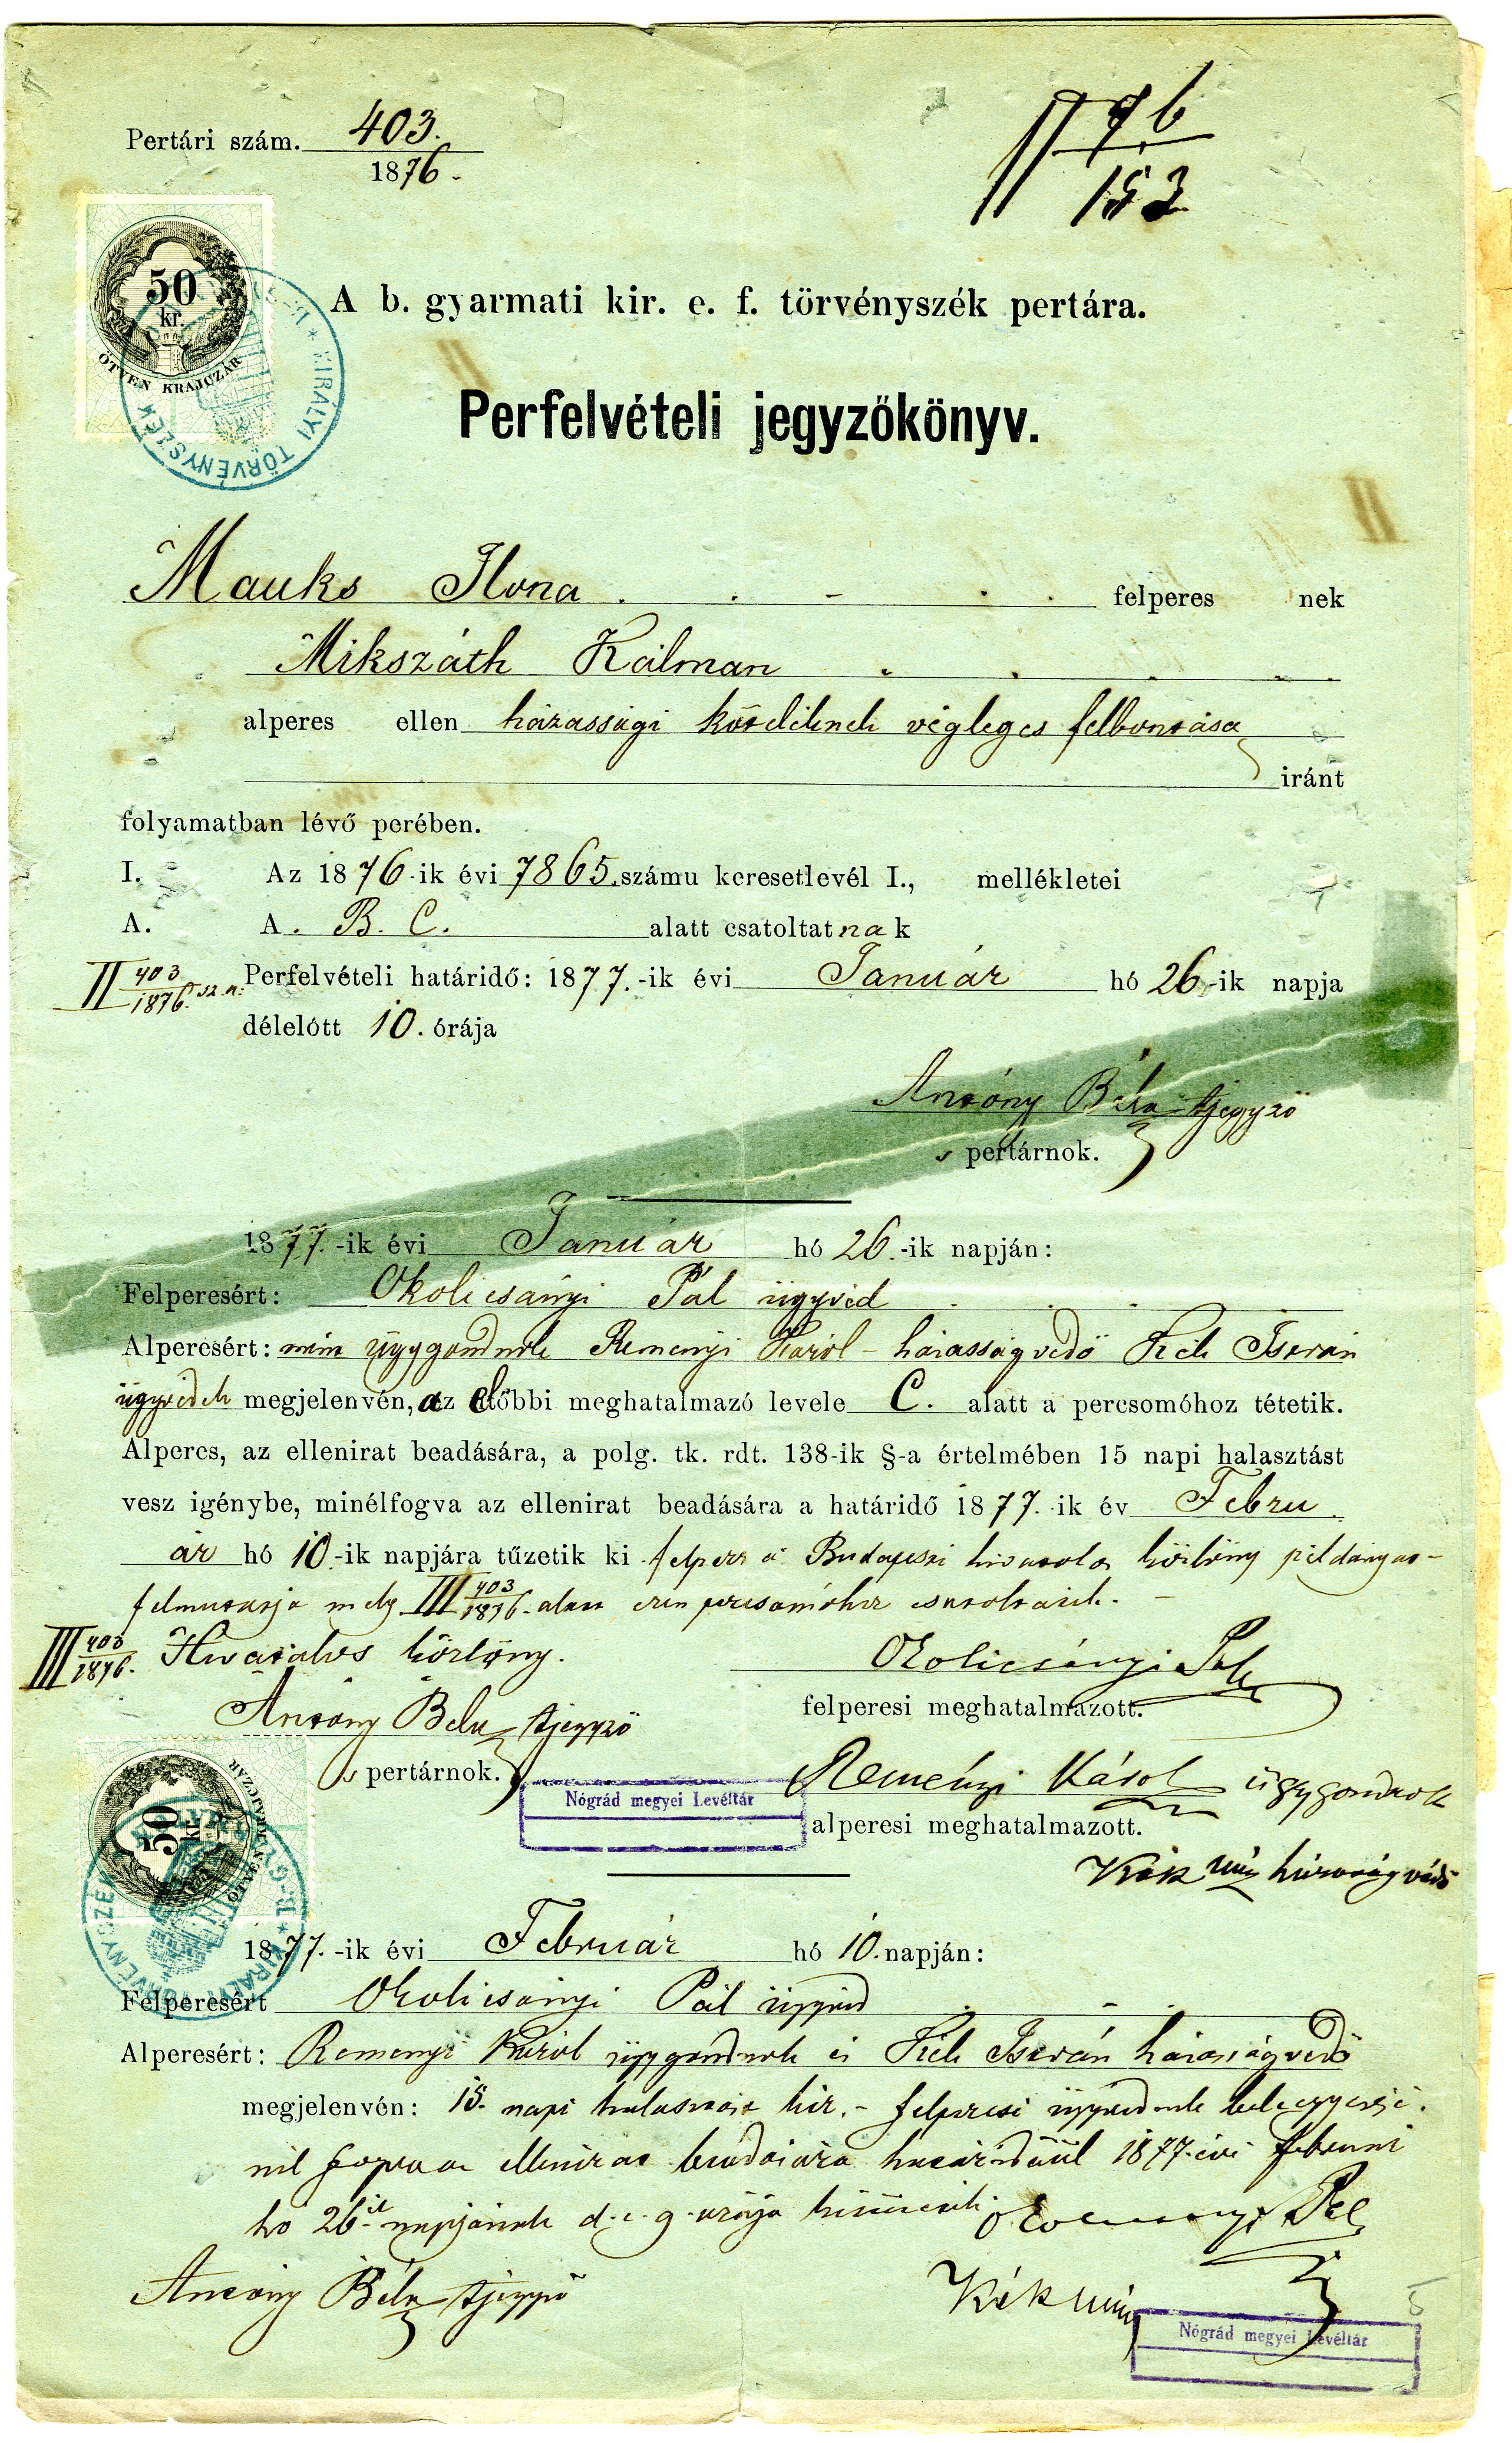 Pertári szám. 403.
1876.
II 76
153
50
kr.
ÖTVEN KRAJCZÁR
KIRÁLYI TÖRVÉNYSZÉK
A b. gyarmati kir. e. f. törvényszék pertára.
Perfelvételi jegyzőkönyv.
Mauks Ilona felperes nek
Mikszáth Kálman
alperes ellen házassági kötelének végleges felbontása
iránt
folyamatban lévő perében.
I. Az 1876-ik évi 7865. számu keresetlevél I., mellékletei
A. A. B. C. alatt csatoltatnak
II 403/1876. sz. a. Perfelvételi határidő: 1877.-ik évi Január hó 26-ik napja
délelőtt 10. órája
Antóny Béla tjegyző
s pertárnok.
1877.-ik évi Január hó 26.-ik napján:
Felperesért: Okolicsányi Pál ügyvéd
Alperesért: mint ügygondnok Remenyi Károl - házasságvédő Kék István
ügyvédek megjelenvén, az előbbi meghatalmazó levele C. alatt a percsomóhoz tétetik.
Alperes, az ellenirat beadására, a polg. tk. rdt. 138-ik §-a értelmében 15 napi halasztást
vesz igénybe, minélfogva az ellenirat beadására a határidő 1877.-ik év Febru
ár hó 10.-ik napjára tűzetik ki felperes a Budapesti hivatalos közlöny példányát
felmutatja mely III 403/1876. alatt ezen percsomóhoz csatoltatik.
III 403/1876. Hivatalos közlöny.
Okolicsányi Pál
felperesi meghatalmazott.
Antóny Béla tjegyző
s pertárnok.
Reményi Károl ügygondnok
alperesi meghatalmazott.
Nógrád megyei Levéltár
Kék mp házasságvédő
50
kr.
ÖTVEN KRAJCZÁR
KIRÁLYI TÖRVÉNYSZÉK
1877.-ik évi Február hó 10. napján:
Felperesért Okolicsányi Pál ügyvéd
Alperesért: Remenyi Károl ügygondnok és Kék István házasságvédő
megjelenvén: 15. napi halasztást kér. - felperesi ügyvédnek beleegyezésé-
nél fogva az ellenirat beadására határidőül 1877. évi februar
hó 26ik napjának d. e. 9. órája kitüzetik.
Okolicsányi Pál
Antóny Béla tjegyző
Kék mp
Nógrád megyei Levéltár
5